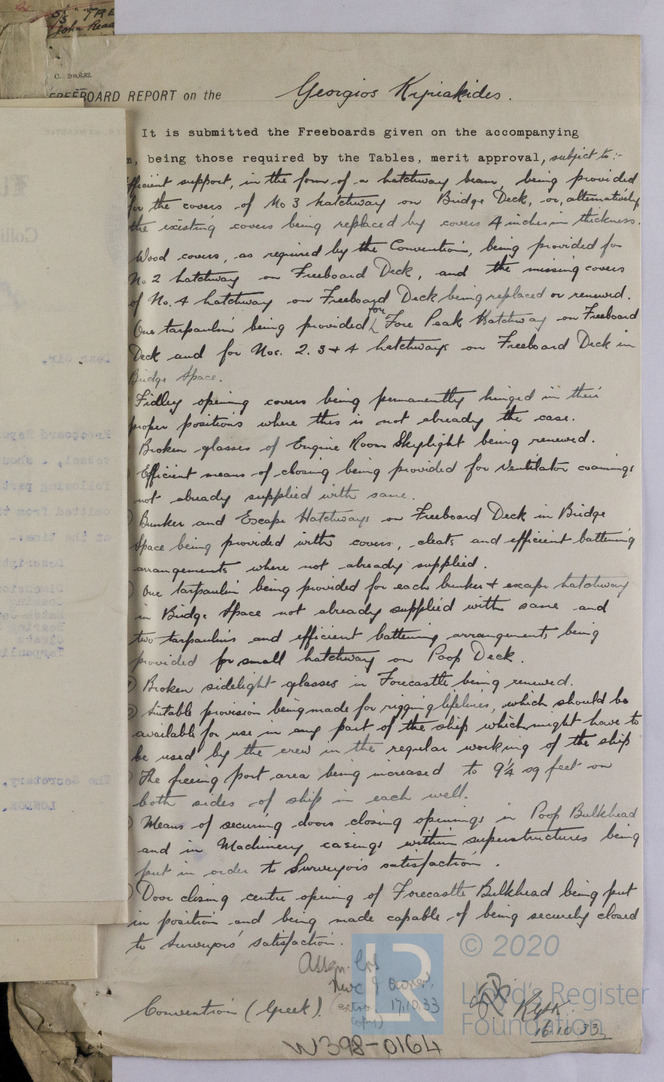 FREEBOARD REPORT on the Georgios Kyriakides.
It is submitted the Freeboards given on the accompanying
, being those required by the Tables, merit approval, subject to:-
fficient support, in the form of a hatchway beam, being provided
for the covers of No 3 hatchway on Bridge Deck, or, alternatively
the existing covers being replaced by covers 4 inches in thickness.
Wood covers, as required by the Convention, being provided for
No 2 hatchway on Freeboard Deck, and the missing covers
of No. 4 hatchway on Freeboard Deck being replaced or renewed.
One tarpaulin being provided for Fore Peak Hatchway on Freeboard
Deck and for Nos. 2. 3 & 4 hatchways on Freeboard Deck in
Bridge Space.
Fidley opening covers being permanently hinged in their
proper positions where this is not already the case.
Broken glasses of Engine Room Skylight being renewed.
Efficient means of closing being provided for ventilator coamings
not already supplied with same.
Bunker and Escape Hatchways on Freeboard Deck in Bridge
Space being provided with covers, cleats and efficient battening
arrangements where not already supplied.
One tarpaulin being provided for each bunker & escape hatchway
in Bridge Space not already supplied with same and
two tarpaulins and efficient battening arrangements being
provided for small hatchway on Poop Deck.
Broken sidelight glasses in Forecastle being renewed.
Suitable provision being made for rigging lifelines, which should be
available for use in any part of the ship which might have to
be used by the crew in the regular working of the ship
The freeing port area being increased to 9¼ sq feet on
both sides of ship in each well.
Means of securing doors closing openings in Poop Bulkhead
and in Machinery casings within superstructures being
put in order to Surveyors satisfaction.
Door closing centre opening of Forecastle Bulkhead being put
in position and being made capable of being securely closed
to Surveyors' satisfaction.
17.10.33
Convention (Greek).
16.10.33
W398-0164
© 2020
Lloyd's Register
Foundation